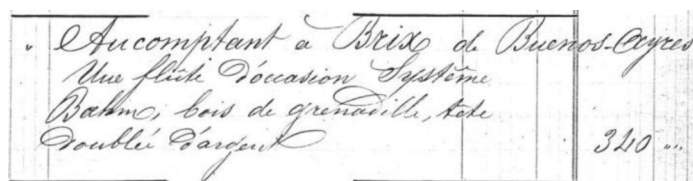 " Au comptant à Brix de Buenos-Ayres
Une flûte d'occasion Système
Bœhm, bois de grenadille, tête
doublée d'argent 340 "